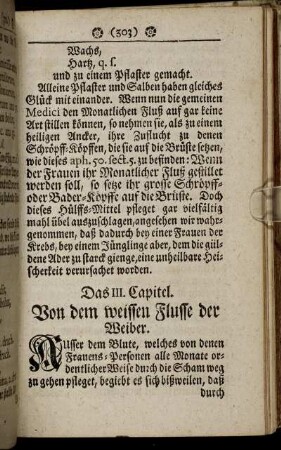 (303)
Wachs,
Hartz, q. s.
und zu einem Pflaster gemacht.
Alleine Pflaster und Salben haben gleiches
Glück mit einander. Wenn nun die gemeinen
Medici den Monatlichen Fluß auf gar keine
Art stillen können, so nehmen sie, als zu einem
heiligen Ancker, ihre Zuflucht zu denen
Schröpff-Köpffen, die sie auf die Brüste setzen,
wie dieses aph. 50. sect. 5. zu befinden: Wenn
der Frauen ihr Monatlicher Fluß gestillet
werden soll, so setze ihr grosse Schröpff-
oder Bader-Köpffe auf die Brüste. Doch
dieses Hülffs-Mittel pfleget gar vielfältig
mahl übel auszuschlagen, angesehen wir wahr-
genommen, daß dadurch bey einer Frauen der
Krebs, bey einem Jünglinge aber, dem die gül-
dene Ader zu starck gienge, eine unheilbare Hei-
scherkeit verursachet worden.
Das III. Capitel.
Von dem weissen Flusse der
Weiber.
Ausser dem Blute, welches von denen
Frauens-Personen alle Monate or-
dentlicher Weise durch die Scham weg
zu gehen pfleget, begiebt es sich bißweilen, daß
durch